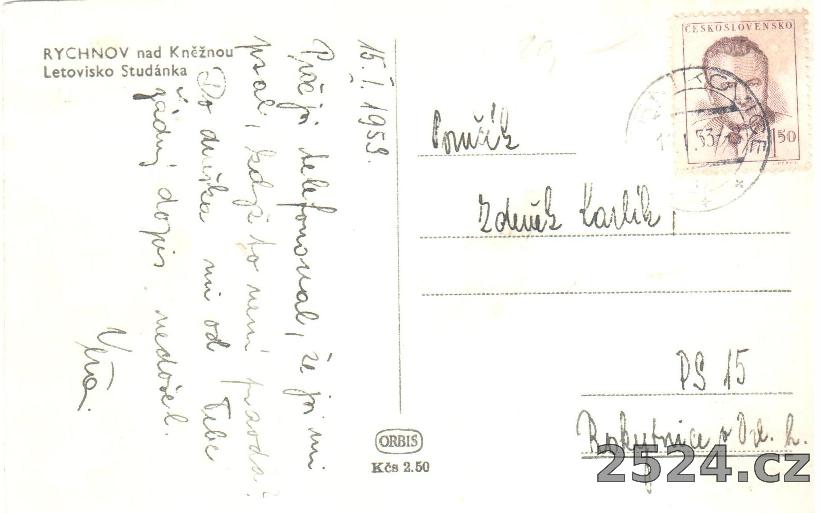 RYCHNOV nad Kněžnou
Letovisko Studánka
15. I. 1953.
Proč js telefonoval, že js mi
psal, když to není pravda?
Do dneška mi od Tebe
žádný dopis nedošel.
Věra.
ORBIS
Kčs 2.50
ČESKOSLOVENSKO
1.50
Poručík
Zdeněk Karlík
PS 15
Rokytnice v Orl. h.
2524.cz